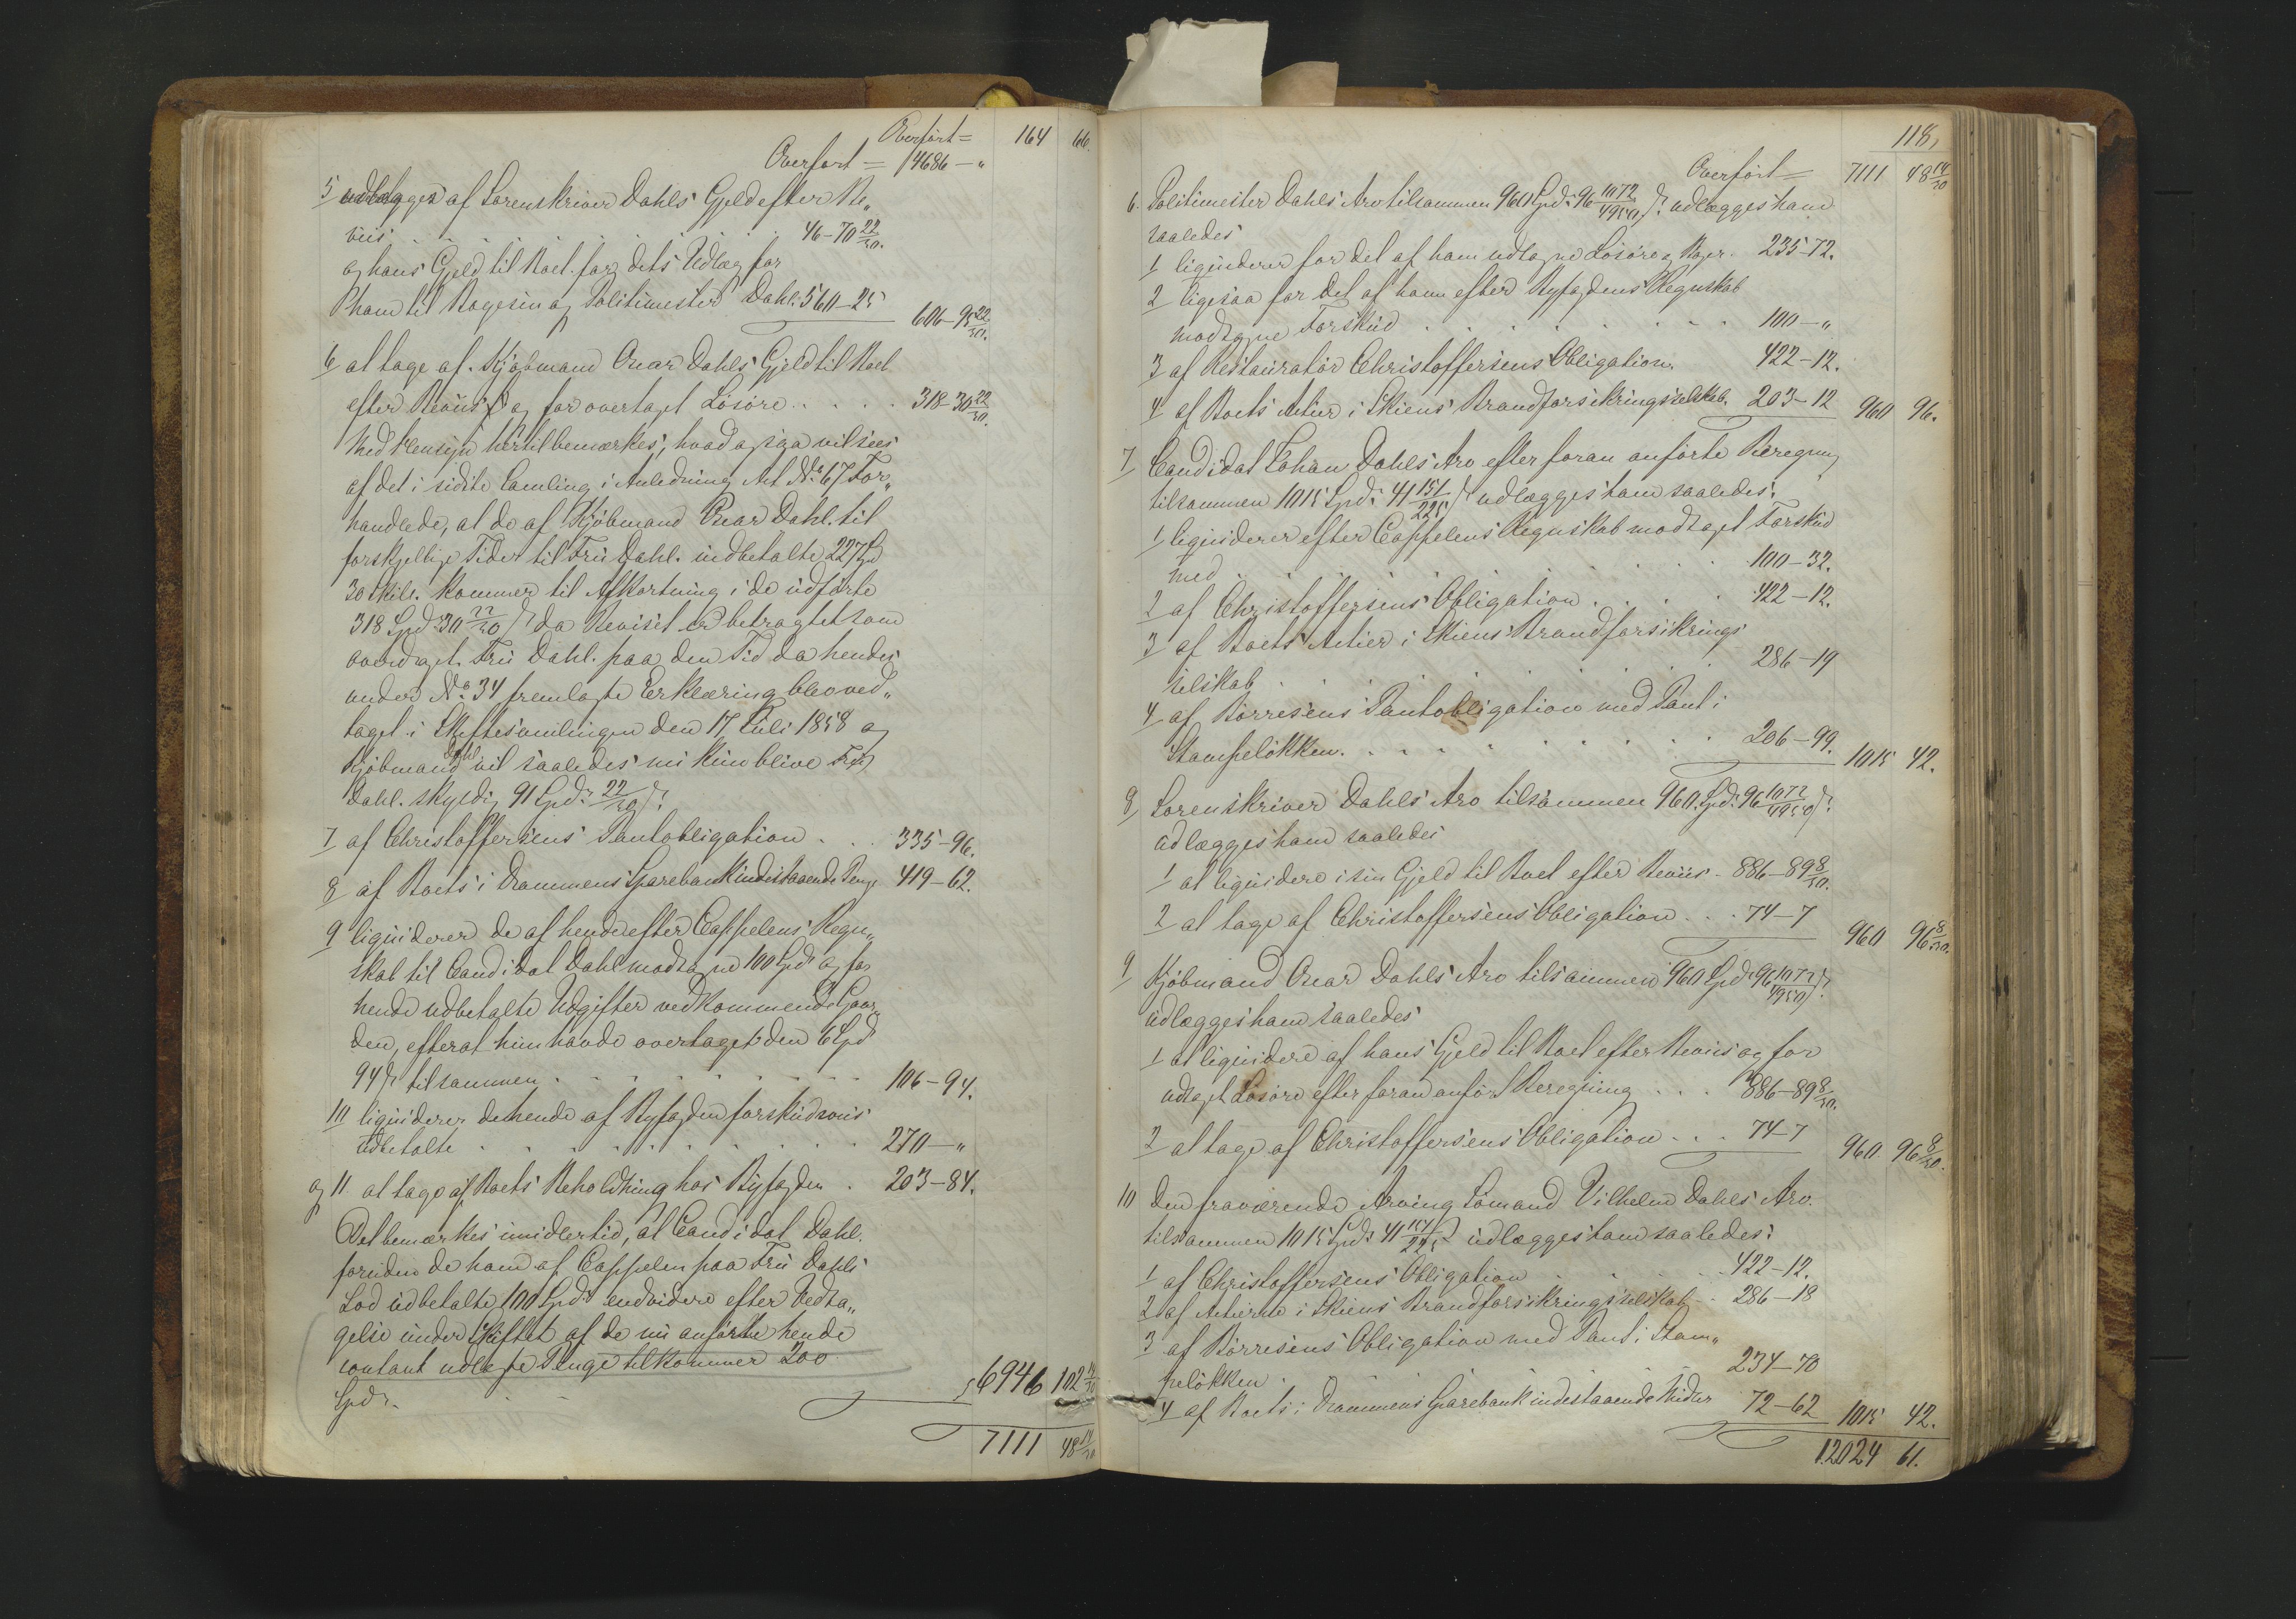 Overført = 164 66.
Overført = 4686 – "
5 udlægges af Sorenskriver Dahls Gjeld efter Re„
viis . . . . . . . 46–70 22/30.
og hans Gjeld til Boet for dets Udlæg for
ham til Bogesen og Politimester Dahl 560–25 606–95 22/30.
6 at tage af Kjøbmand Omar Dahls Gjeld til Boet
efter Reviis og for overtaget Løsøre . . . . 318–30 22/30.
Med Hensyn hertil bemærkes, hvad ogsaa vil sees
af det i sidste Samling i Anledning Art No 67 For„
handlede, at de af Kjøbmand Omar Dahl til
forskjellige Tider til Fru Dahl indbetalte 227 Spd
30 Skill. kommer til Afkortning i de udførte
318 Spd 30 22/30 s da Reviset er betragtet som
overdraget Fru Dahl paa den Tid da hendes
under No 34 fremlagte Erklæring blev ved„
taget i Skiftesamlingen den 17 Juli 1858 og
Kjøbmand Dahl vil saaledes nu kun blive Fru
Dahl skyldig 91 Spd 22/30 s.
7 af Christoffersens Pantobligation . . . 335–96.
8 af Boets i Drammens Sparebank indestaaende Penge 419–62.
9 liqviderer de af hende efter Cappelens Regn„
skab til Candidat Dahl modtagne 100 Spd og for
hende udbetalte Udgifter vedkommende Gaar„
den, efterat hun havde overtaget den 6 Spd
94 s tilsammen . . . . . . . 106–94.
10 liqviderer de hende af Byfogden forskudsviis
udbetalte . . . . . . . . 270–"
og 11 at tage af Boets Beholdning hos Byfogden . 203–84.
Det bemærkes imidlertid, at Candidat Dahl
foruden de ham af Cappelen paa Fru Dahls
Lod udbetalte 100 Spd endvidere efter Vedta„
gelse under Skiftet af de nu anførte hende
contant udlagte Penge tilkommer 200
Spd.
6946 102
7111 48 14/30
118,
Overført = 7111 48 14/30
6. Politimester Dahls Arv tilsammen 960 Spd 96 1072/4950 s udlægges ham
saaledes
1 liqviderer for det af ham udtagne Løsøre og Bøger. 235–72.
2 ligesaa for det af ham efter Byfogdens Regnskab
modtagne Forskud . . . . . . . 100–"
3 af Restauratør Christoffersens Obligation. 422–12.
4 af Boets Actier i Skiens Brandforsikringsselskab. 203–12 960 96.
7 Candidat Johan Dahls Arv efter foran anførte Beregning
tilsammen 1015 Spd 41 151/225 s udlægges ham saaledes:
1 liqviderer efter Cappelens Regnskab modtaget Forskud
med . . . . . . . . 100–32.
2 af Christoffersens Obligation . . . . 422–12.
3 af Boets Actier i Skiens Brandforsikrings
selskab . . . . . . . . 286–19
4 af Börresens Pantobligation med Pant i
Stampeløkken. . . . . . . . 206–99. 1015 42.
8 Sorenskriver Dahls Arv tilsammen 960 Spd 96 1072/4950 s.
udlægges ham saaledes
1 at liqvidere i sin Gjeld til Boet efter Reviis . 886–89 8/30.
2 at tage af Christoffersens Obligation . . . 74–7 960 96 8/30.
9 Kjøbmand Omar Dahls Arv tilsammen 960 Spd 96 1072/4950 s.
udlægges ham saaledes
1 at liqvidere af hans Gjeld til Boet efter Reviis og for
udtaget Løsøre efter foran anført Beregning . . . 886–89 8/30.
2 at tage af Christoffersens Obligation . . . 74–7 960. 96 8/30.
10 den fraværende Arving Sömand Vilhelm Dahls Arv.
tilsammen 1015 Spd 41 151/225 s udlægges ham saaledes:
1 af Christoffersens Obligation . . . . 422–12.
2 af Actierne i Skiens Brandforsikringsselskab . 286–18
3 af Börresens Obligation med Pant i Stam„
peløkken . . . . 234–70
4 af Boets i Drammens Sparebank indestaaende Midler 72–62 1015 42.
12024 61.